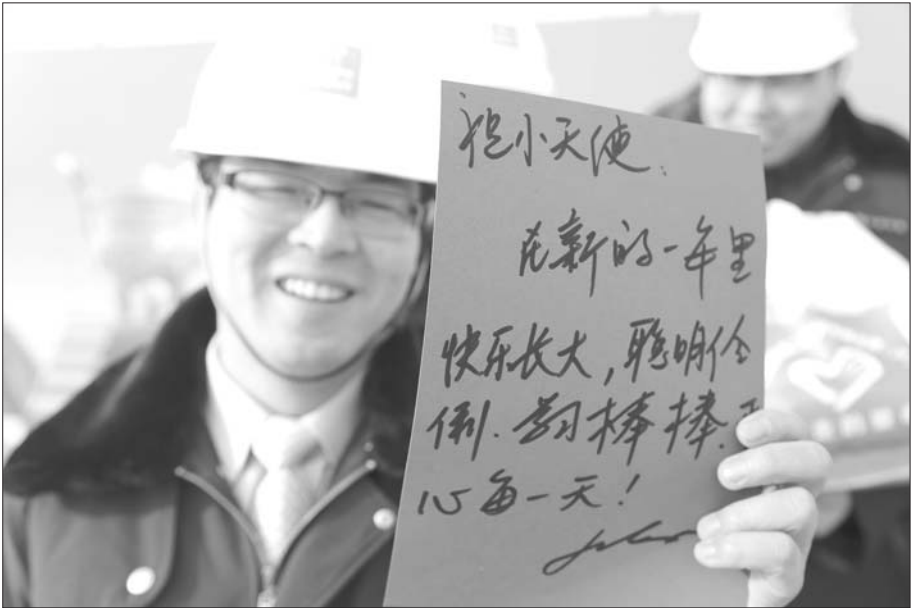 祝小天使:
在新的一年里
快乐长大,聪明伶
俐.学习棒棒.开
心每一天!